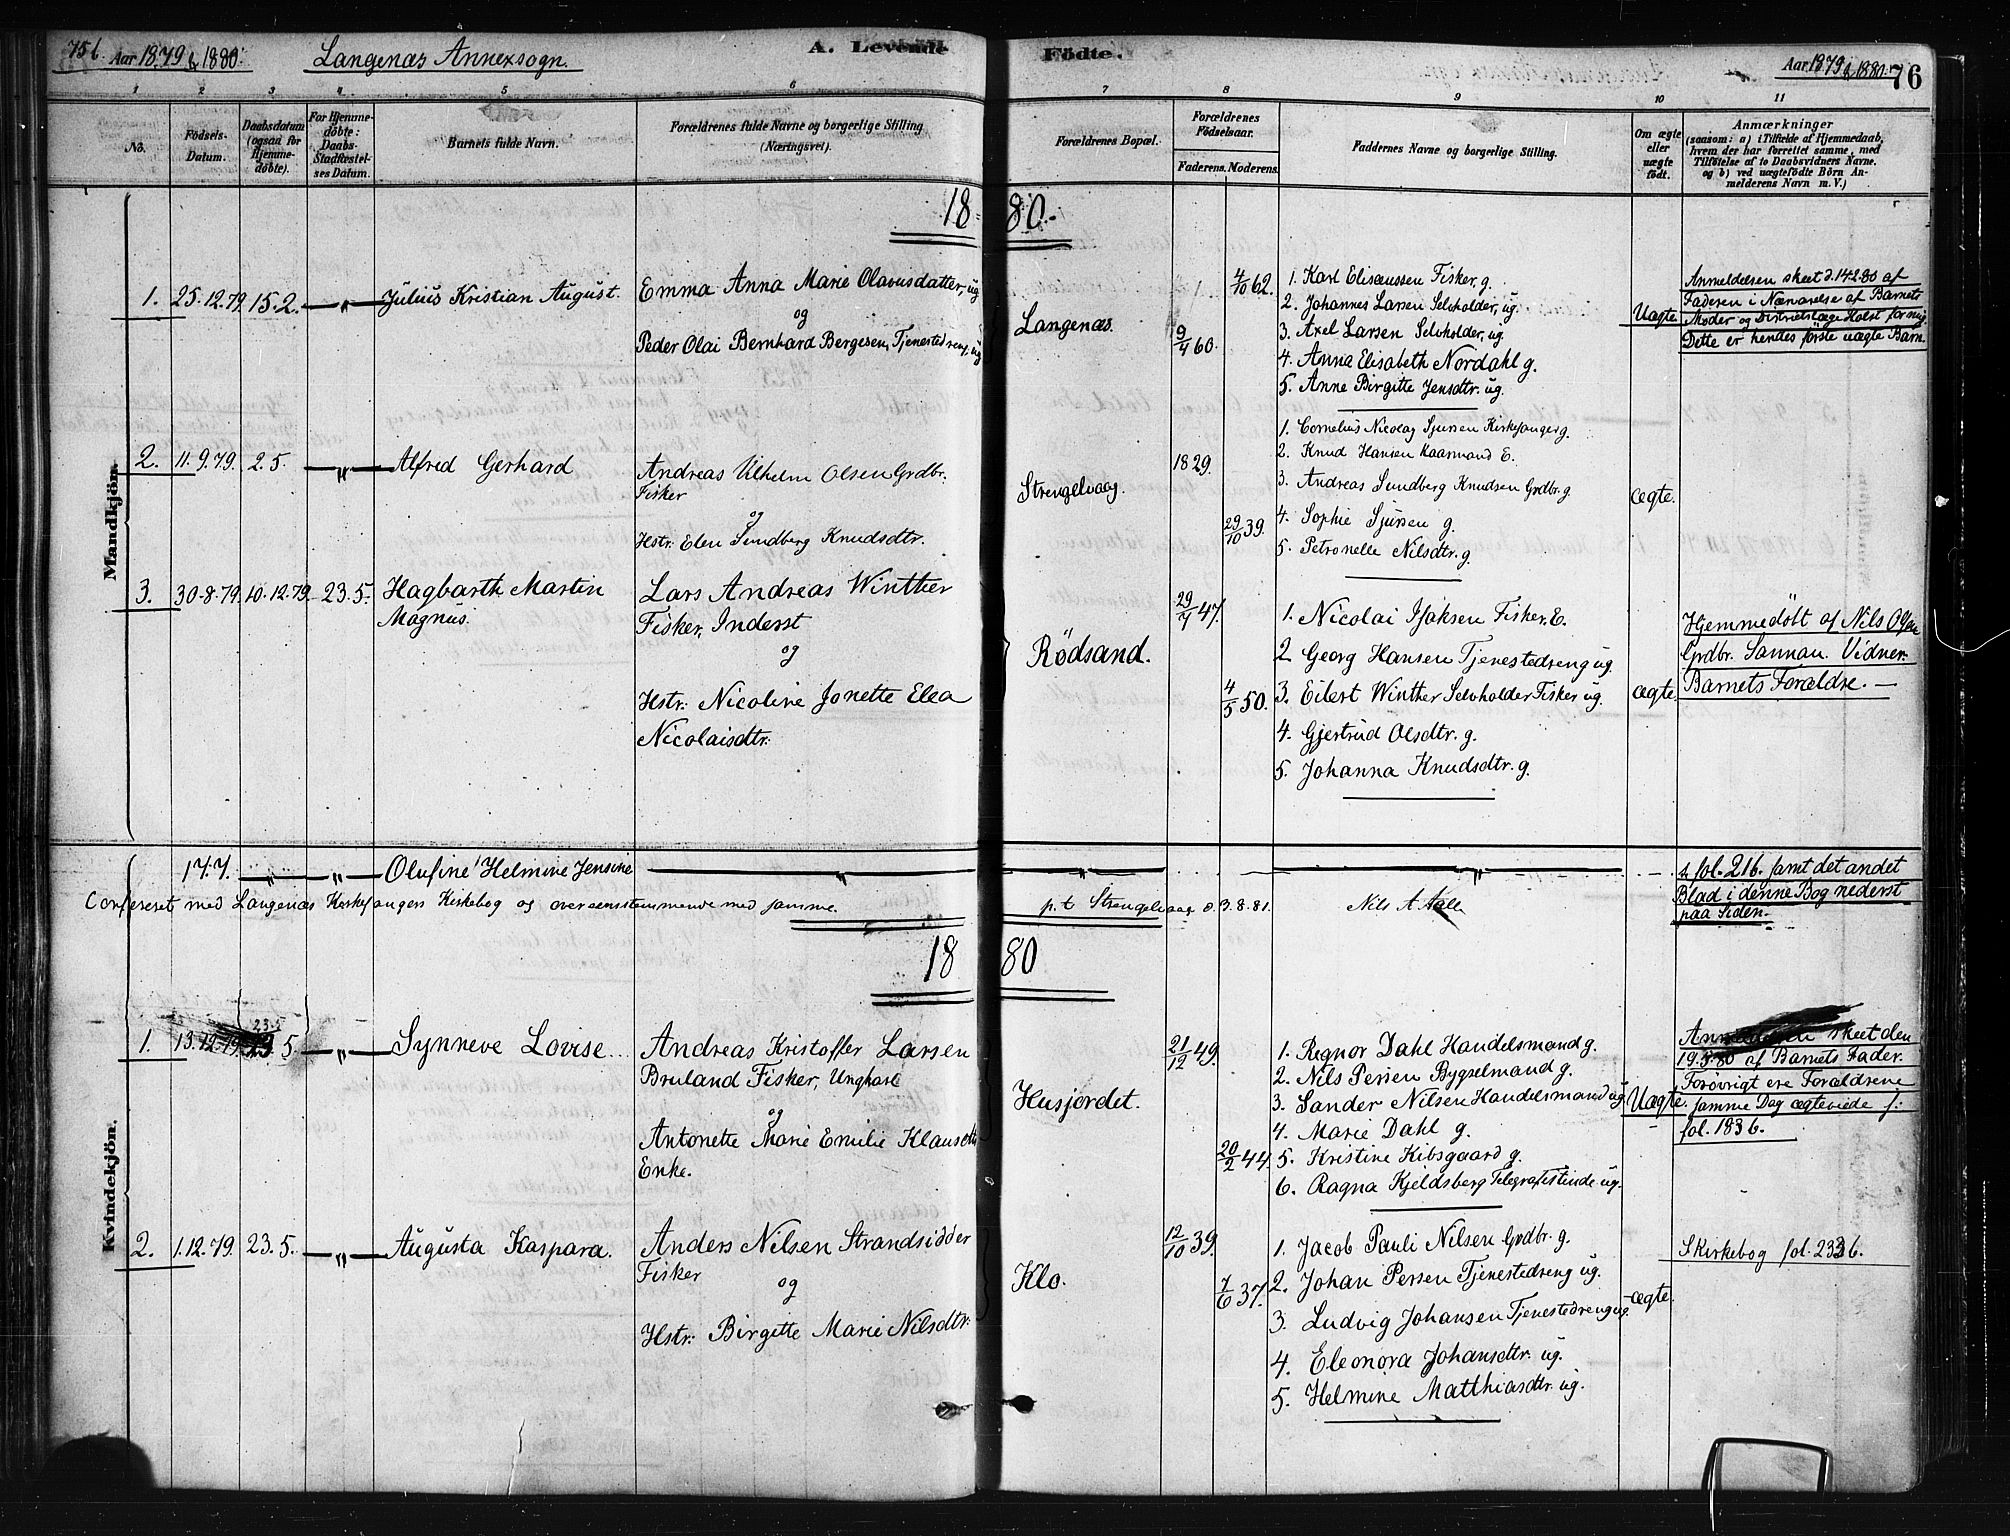 75b. Aar 1879 & 1880: Langenæs Annexsogn. A. Levende Fødte. Aar 1879 & 1880: 76
1 2 3 4 5 6 7 8 9 10 11
No. Fødsels-Datum. Daabsdatum (ogsaa for Hjemme-døbte). For Hjemme-døbte: Daabs-Stadfæstel-ses Datum. Barnets fulde Navn. Forældrenes fulde Navne og borgerlige Stilling (Næringsvei). Forældrenes Bopæl. Forældrenes Fødselsaar. Faderens. Moderens. Faddernes Navne og borgerlige Stilling. Om ægte eller uægte født.
Anmærkninger
(saasom: a) i Tilfælde af Hjemmedaab,
hvem der har forrettet samme, med
Tilføielse af to Daabsvidners Navne.
og b) ved uægtefødte Børn An-
melderens Navn m. V.)
Mandkjön.
18 80.
1. 25.12.79. 15.2. — „ — Julius Kristian August.
Emma Anna Marie Olavusdatter, ug
og
Peder Olai Bernhard Bergesen, Tjenestedreng, ug
Langenæs.
9/4 60. 4/10 62.
1. Karl Elisæussen Fisker g.
2. Johannes Larsen Selvholder, ug.
3. Axel Larsen Selvholder, ug.
4. Anna Elisabeth Nordahl g.
5. Anne Birgitte Jensdtr. ug.
Uægte
Anmeldelsen skeet d. 14.2.80 af
Faderen i Nærværelse af Barnets
Moder og Districtslæge Holst for mig
Dette er hendes første uægte Barn.
2. 11.9.79. 2.5. — „ — Alfred Gerhard
Andreas Vilhelm Olsen Grdbr.
Fisker
og
Hstr. Elen Sundberg Knudsdtr.
Strengelvaag.
1829. 29/10 39.
1. Cornelius Nicolay Sjursen Kirkesanger g.
2. Knud Hansen Kaarmand E.
3. Andreas Sundberg Knudsen Grdbr. g.
4. Sophie Sjursen g.
5. Petronelle Nilsdtr. g.
ægte.
3. 30.8.79. 10.12.79. 23.5. Hagbarth Martin
Magnus.
Lars Andreas Winther
Fisker, Inderst
og
Hstr: Nicoline Jonette Elea
Nicolaisdtr:
Rødsand.
47. 4/5 50.
1. Nicolai Isaksen Fisker. E.
2 Georg Hansen Tjenestedreng ug.
3. Eilert Winther Selvholder Fisker ug.
4. Gjertrud Olsdtr. g.
5. Johanna Knudsdtr. g.
ægte.
Hjemmedøbt af Nils Olsen
Grdbr. Sannan. Vidner:
Barnets Forældre. —
Kvindekjön.
17.7. — „ — „ — Olufine Helmine Jensine — „ — „ —
fol. 216. samt det andet
Blad i denne Bog nederst
paa Siden.
Confereret med Langenæs Kirkesangers Kirkebog og overeensstemmende med samme.
p. t. Strengelvaag d. 3.8.81. Nils A.
18 80
1. 13.12.79. 23.5. — „ — Synneve Lovise.
Andreas Kristoffer Larsen
Bruland Fisker, Ungkarl
og
Antonette Marie Emilie Klausdtr
Enke.
Husjordet.
21/12 49. 20/2 44.
1. Regnor Dahl Handelsmand g.
2. Nils Persen Bygselmand g.
3. Sander Nilsen Handelsmand ug
4. Marie Dahl g.
5. Kristine Kibsgaard g.
6. Ragna Kjeldsberg Telegrafistinde ug.
Uægte.
Anmeldelsen skeet den
19.5.80 af Barnets Fader.
Forøvrigt ere Forældrene
samme Dag ægteviede f:
fol. 183 b.
2. 1.12.79. 23.5. — „ — Augusta Kaspara.
Anders Nilsen Strandsidder
Fisker
og
Hstr: Birgitte Marie Nilsdtr:
Klo.
12/10 39. 7/6 37.
1. Jacob Pauli Nilsen Grdbr. g.
2. Johan Persen Tjenestedreng ug.
3. Ludvig Johansen Tjenestedreng ug.
4. Eleonora Johansdtr. ug.
5. Helmine Matthiasdtr. ug.
ægte.
S Kirkebog fol. 233 b.